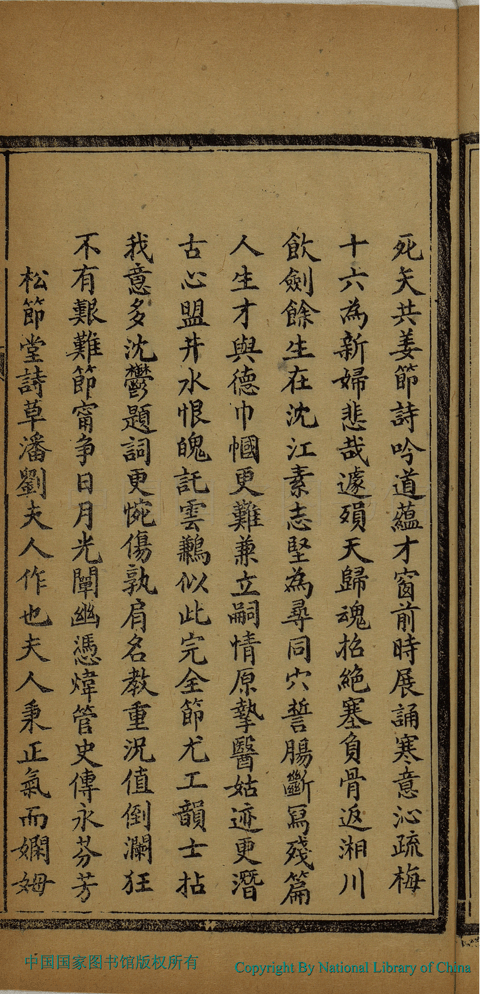 死矢共姜節詩吟道蘊才窗前時展誦寒意沁疏梅
十六為新婦悲哉遽殞天歸魂招絕塞負骨返湘川
飲劍餘生在沈江素志堅為尋同穴誓腸斷寫殘篇
人生才與德巾幗更難兼立嗣情原摯醫姑迹更潛
古心盟井水恨魄託雲鶼似此完全節尤工韻士拈
我意多沈鬱題詞更惋傷孰肩名教重況值倒瀾狂
不有艱難節甯爭日月光闡幽憑煒管史傳永芬芳
松節堂詩草潘劉夫人作也夫人秉正氣而嫻姆
中国国家图书馆版权所有
Copyright By National Library of China